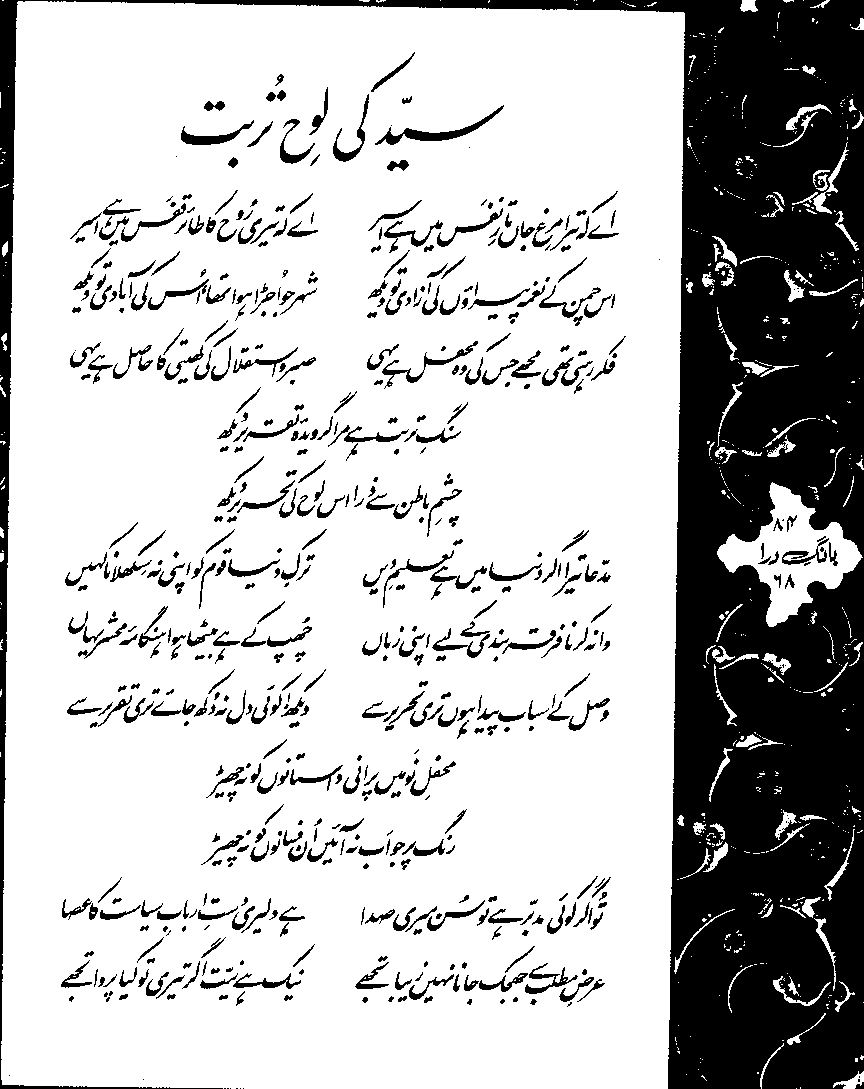 سیّد کی لوحِ تُربت
اے کہ تیرا مرغِ جاں تارِ نفَس میں ہے اسیر    اے کہ تیری رُوح کا طائر قفَس میں ہے اسیر
اس چمن کے نغمہ پیراؤں کی آزادی تو دیکھ    شہر جو اُجڑا ہوا تھا، اُس کی آبادی تو دیکھ
فکر رہتی تھی مجھے جس کی وہ محفل ہے یہی    صبر و استقلال کی کھیتی کا حاصل ہے یہی
سنگِ تربت ہے مرا گرویدۂ تقریر دیکھ
چشمِ باطن سے ذرا اس لوح کی تحریر دیکھ
مدّعا تیرا اگر دنیا میں ہے تعلیمِ دیں    ترکِ دنیا قوم کو اپنی نہ سکھلانا کہیں
وا نہ کرنا فرقہ بندی کے لیے اپنی زباں    چھُپ کے ہے بیٹھا ہوا ہنگامۂ محشر یہاں
وصل کے اسباب پیدا ہوں تری تحریر سے    دیکھ! کوئی دل نہ دُکھ جائے تری تقریر سے
محفلِ نَو میں پرانی داستانوں کو نہ چھیڑ
رنگ پر جو اَب نہ آئیں اُن فسانوں کو نہ چھیڑ
تُو اگر کوئی مدبّر ہے تو سُن میری صدا    ہے دلیری دستِ اربابِ سیاست کا عصا
عرضِ مطلب سے جھجک جانا نہیں زیبا تجھے    نیک ہے نیّت اگر تیری تو کیا پروا تجھے
۸۴
بانگِ درا
۶۸